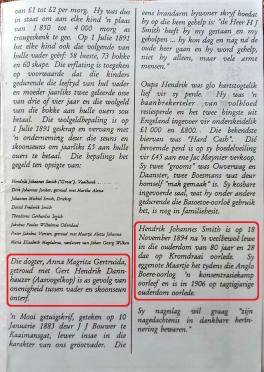 van £1 tot £2 per morg. Hy was dus
in staat om aan elke kind 'n plaas
van 1 830 tot 4 000 morg as
trougeskenk te gee. Op 1 Julie 1891
het elke kind ook die volgende van
hulle vader geërf: 58 beeste, 73 bokke
en 60 skape. Die erflating is toegeken
op voorwaarde dat die kinders
gedurende die leeftyd van hul vader
en moeder jaarliks twee gelaste osse
van drie of vier jaar en die wolgeld
van die bokke aan hulle ouers sou
betaal. Die wolgeldbepaling is op
1 Julie 1891 gekerap en vervang met
'n onderneming deur die seuns en
skoonseuns om jaarliks £5 aan hulle
ouers te betaal. Die bepalings het
gegeld ten opsigte van:
Dirk Johannes Jordaan, getroud met Martha Alena
Johannes Michiel Smith, Driekop
Daniel Frederik Smith
Theodorus Gerhardus Smith
Jacobus Paulus Wilhelmus Odendaal
Pieter Jacobus Viviers, getroud met Maartje Aletta Johanna
Maria Elizabeth Magdalena, verbonden aan Johan Georg Wilken
Die dogter, Anna Magrita Gertruida,
getroud met Gert Hendrik Dann-
hauzer (Aarvogelkop) is as gevolg van
onenigheid tussen vader en skoonseun
onterf.
'n Mooi getuigskrif, geteken op 10
Januarie 1883 deur J J Bouwer te
Kaaimansgat, lewer insae in die
karakter van ons grootvader. Die
eens brandarm bywoner skryf hoedat
hy op die been gehelp is: "de Heer H J
Smith heeft by my gestaan en my
geholpen ... hy kon dag en nag de
oude heer gaan en hy word geholpen,
niet by alleen, maar vele arme
mensen."
Oupa Hendrik was glo hartstogtelik
lief vir sy perde. Hy was 'n
baanbrekerteler van volbloed
resiesperde en het twee hingste uit
Engeland ingevoer vir onderskeidelik
£1 000 en £800. Die bekendste
hierdie was "Hard Cash". Die
beroemde perd is op 'n boedelveiling
vir £45 aan ene Jac Mosynier verkoop.
Sy twee "grooms" was Ouvervrag en
Daanster, twee Boesmans wat deur
homself "mak gemaak" is. Sy kosbare
ingevoerde saal, wat hy onder andere
gedurende die Basoetoe-oorlog gebruik
het, is nog in familiebesit.
Hendrik Johannes Smith is op 18
November 1894 na 'n veelbewoë lewe
in die ouderdom van 80 jaar en 28
dae op Kromdraai oorlede. Sy
eggenote Maartje het tydens die Anglo
Boere-oorlog 'n konsentrasiekamp
oorleef en is in 1906 op tagtigjarige
ouderdom oorlede.
Sy nageslag wil graag "zijn
nagedachtenis in dankbare herin-
nering bewaren."